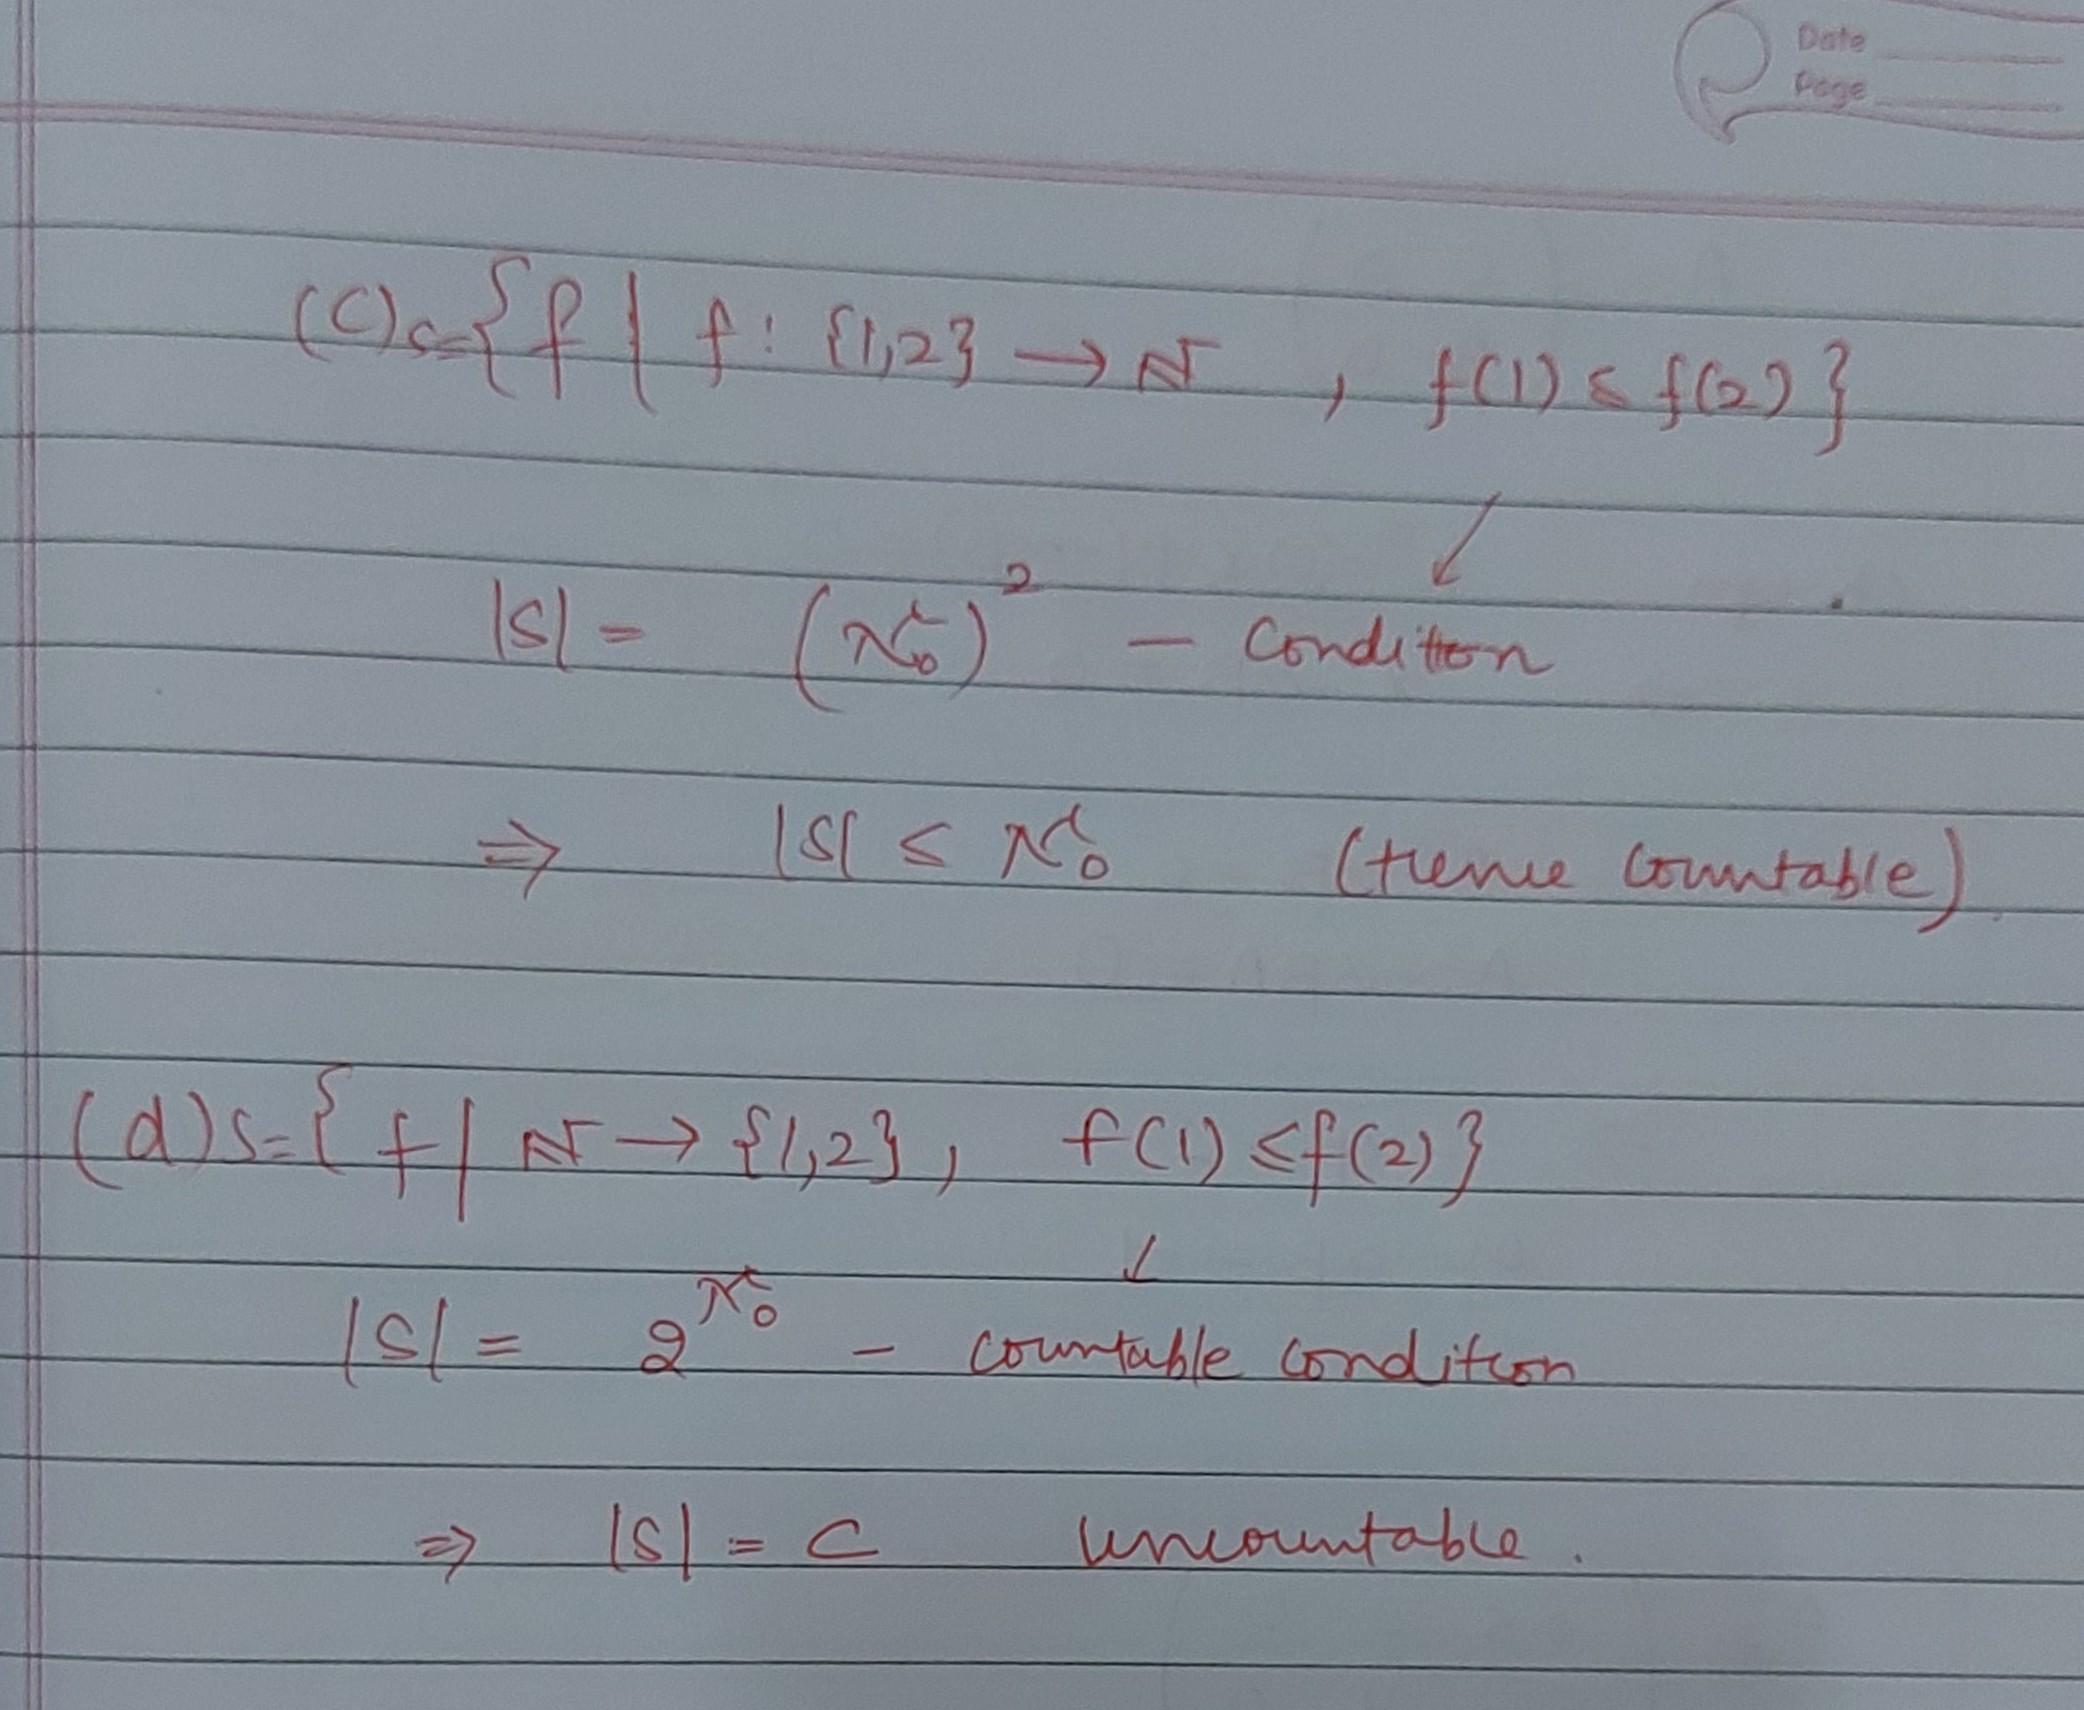 Date
Page
(C) S = { f | f : {1,2} → ℕ , f(1) ≤ f(2) }
↓
|S| = (ℵ₀)² – Condition
⇒ |S| ≤ ℵ₀ (Hence Countable)
(d) S = { f | ℕ → {1,2}, f(1) ≤ f(2) }
↓
|S| = 2^ℵ₀ – countable condition
⇒ |S| = C uncountable.